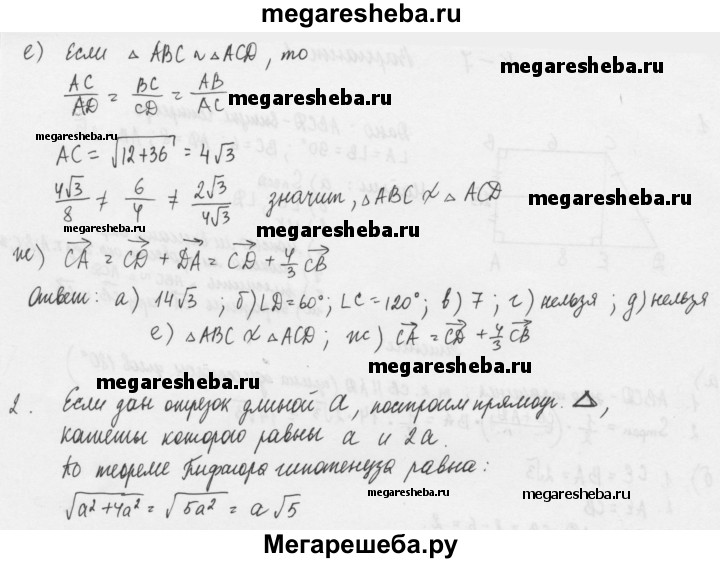 megaresheba.ru
е) Если △ ABC ∾ △ACD, то
AC/AD = BC/CD = AB/AC
megaresheba.ru
megaresheba.ru
megaresheba.ru
AC = √(12+36) = 4√3
4√3/8 ≠ 6/4 ≠ 2√3/4√3 значит, △ABC ≁ △ ACD
megaresheba.ru
megaresheba.ru
ж) CA = CD + DA = CD + 4/3 CB
Ответ: а) 14√3, б) ∠D=60°; ∠C=120°; в) 7; г) нельзя; д) нельзя
е) △ABC ≁ △ACD; ж) CA = CD + 4/3 CB
megaresheba.ru
megaresheba.ru
2. Если дан отрезок длиной a, построим прямоуг. △,
катеты которого равны a и 2a.
megaresheba.ru
По теореме Пифагора гипотенуза равна:
√(a²+4a²) = √(5a²) = a√5
megaresheba.ru
megaresheba.ru
Мегарешеба.ру